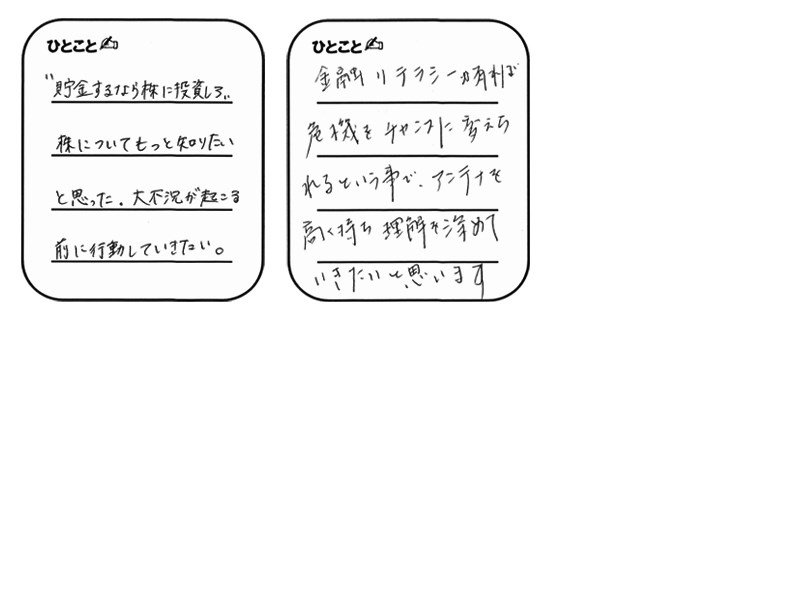 ひとこと
"貯金するなら株に投資しろ"
株についてもっと知りたい
と思った。大不況が起こる
前に行動していきたい。
ひとこと
金融リテラシーが有れば
危機をチャンスに変えら
れるという事で、アンテナを
高く持ち理解を深めて
いきたいと思います